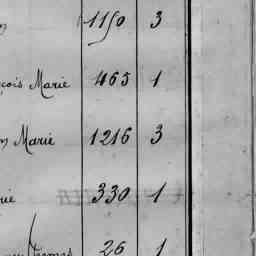 1150 3
çois Marie 465 1
n Marie 1216 3
rie 330 1
Thomas 26 1